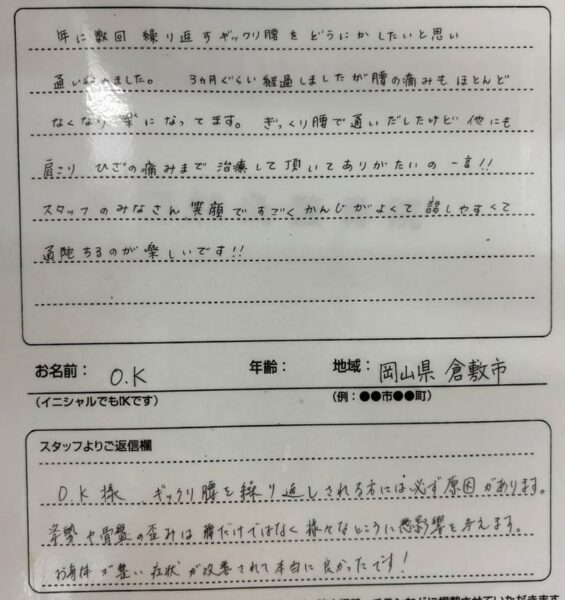 年に数回 繰り返すギックリ腰を どうにかしたいと思い
通い始めました。 3ヵ月ぐらい 経過しましたが腰の痛みも ほとんど
なくなり 楽に なってます。 ぎっくり腰で 通いだしたけど 他にも
肩こり ひざの痛みまで 治療して 頂いて ありがたいの 一言!!
スタッフのみなさん 笑顔で すごく かんじがよくて 話しやすくて
通院するのが 楽しいです!!
お名前: O.K 年齢: 地域: 岡山県 倉敷市
(イニシャルでもOKです) (例:●●市●●町)
スタッフよりご返信欄
O.K 様 ギックリ腰を繰り返しされる方には必ず原因があります。
姿勢や骨盤の歪みは腰だけではなく様々なところに悪影響を与えます。
お身体が整い 症状が改善されて本当に良かったです!